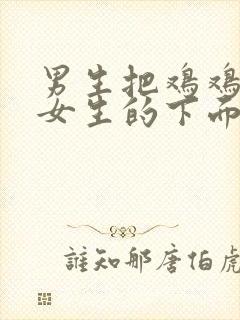 男生把鸡鸡
女生的下面
誰知那唐伯虎